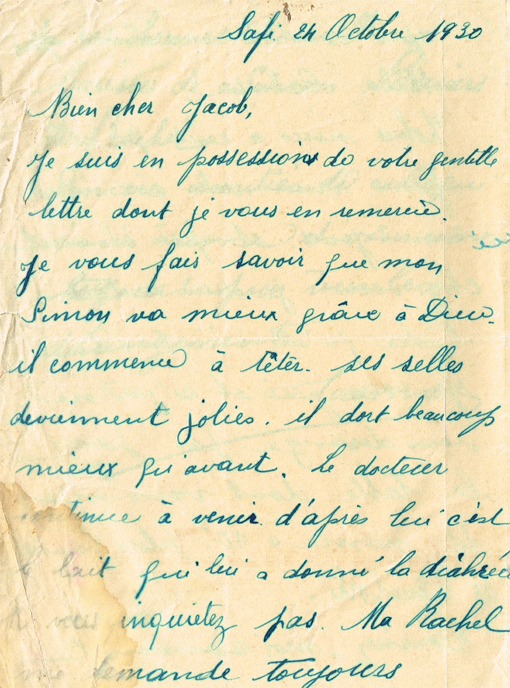 Safi 24 Octobre 1930
Bien cher Jacob,
Je suis en possession de votre gentille
lettre dont je vous en remercie.
Je vous fais savoir que mon
Simon va mieux grâce à Dieu.
il commence à têter. ses selles
deviennent jolies. il dort beaucoup
mieux qu'avant. Le docteur
continue à venir. d'après lui c'est
le lait qui lui a donné la diahrée
vous inquietez pas. Ma Rachel
me demande toujours